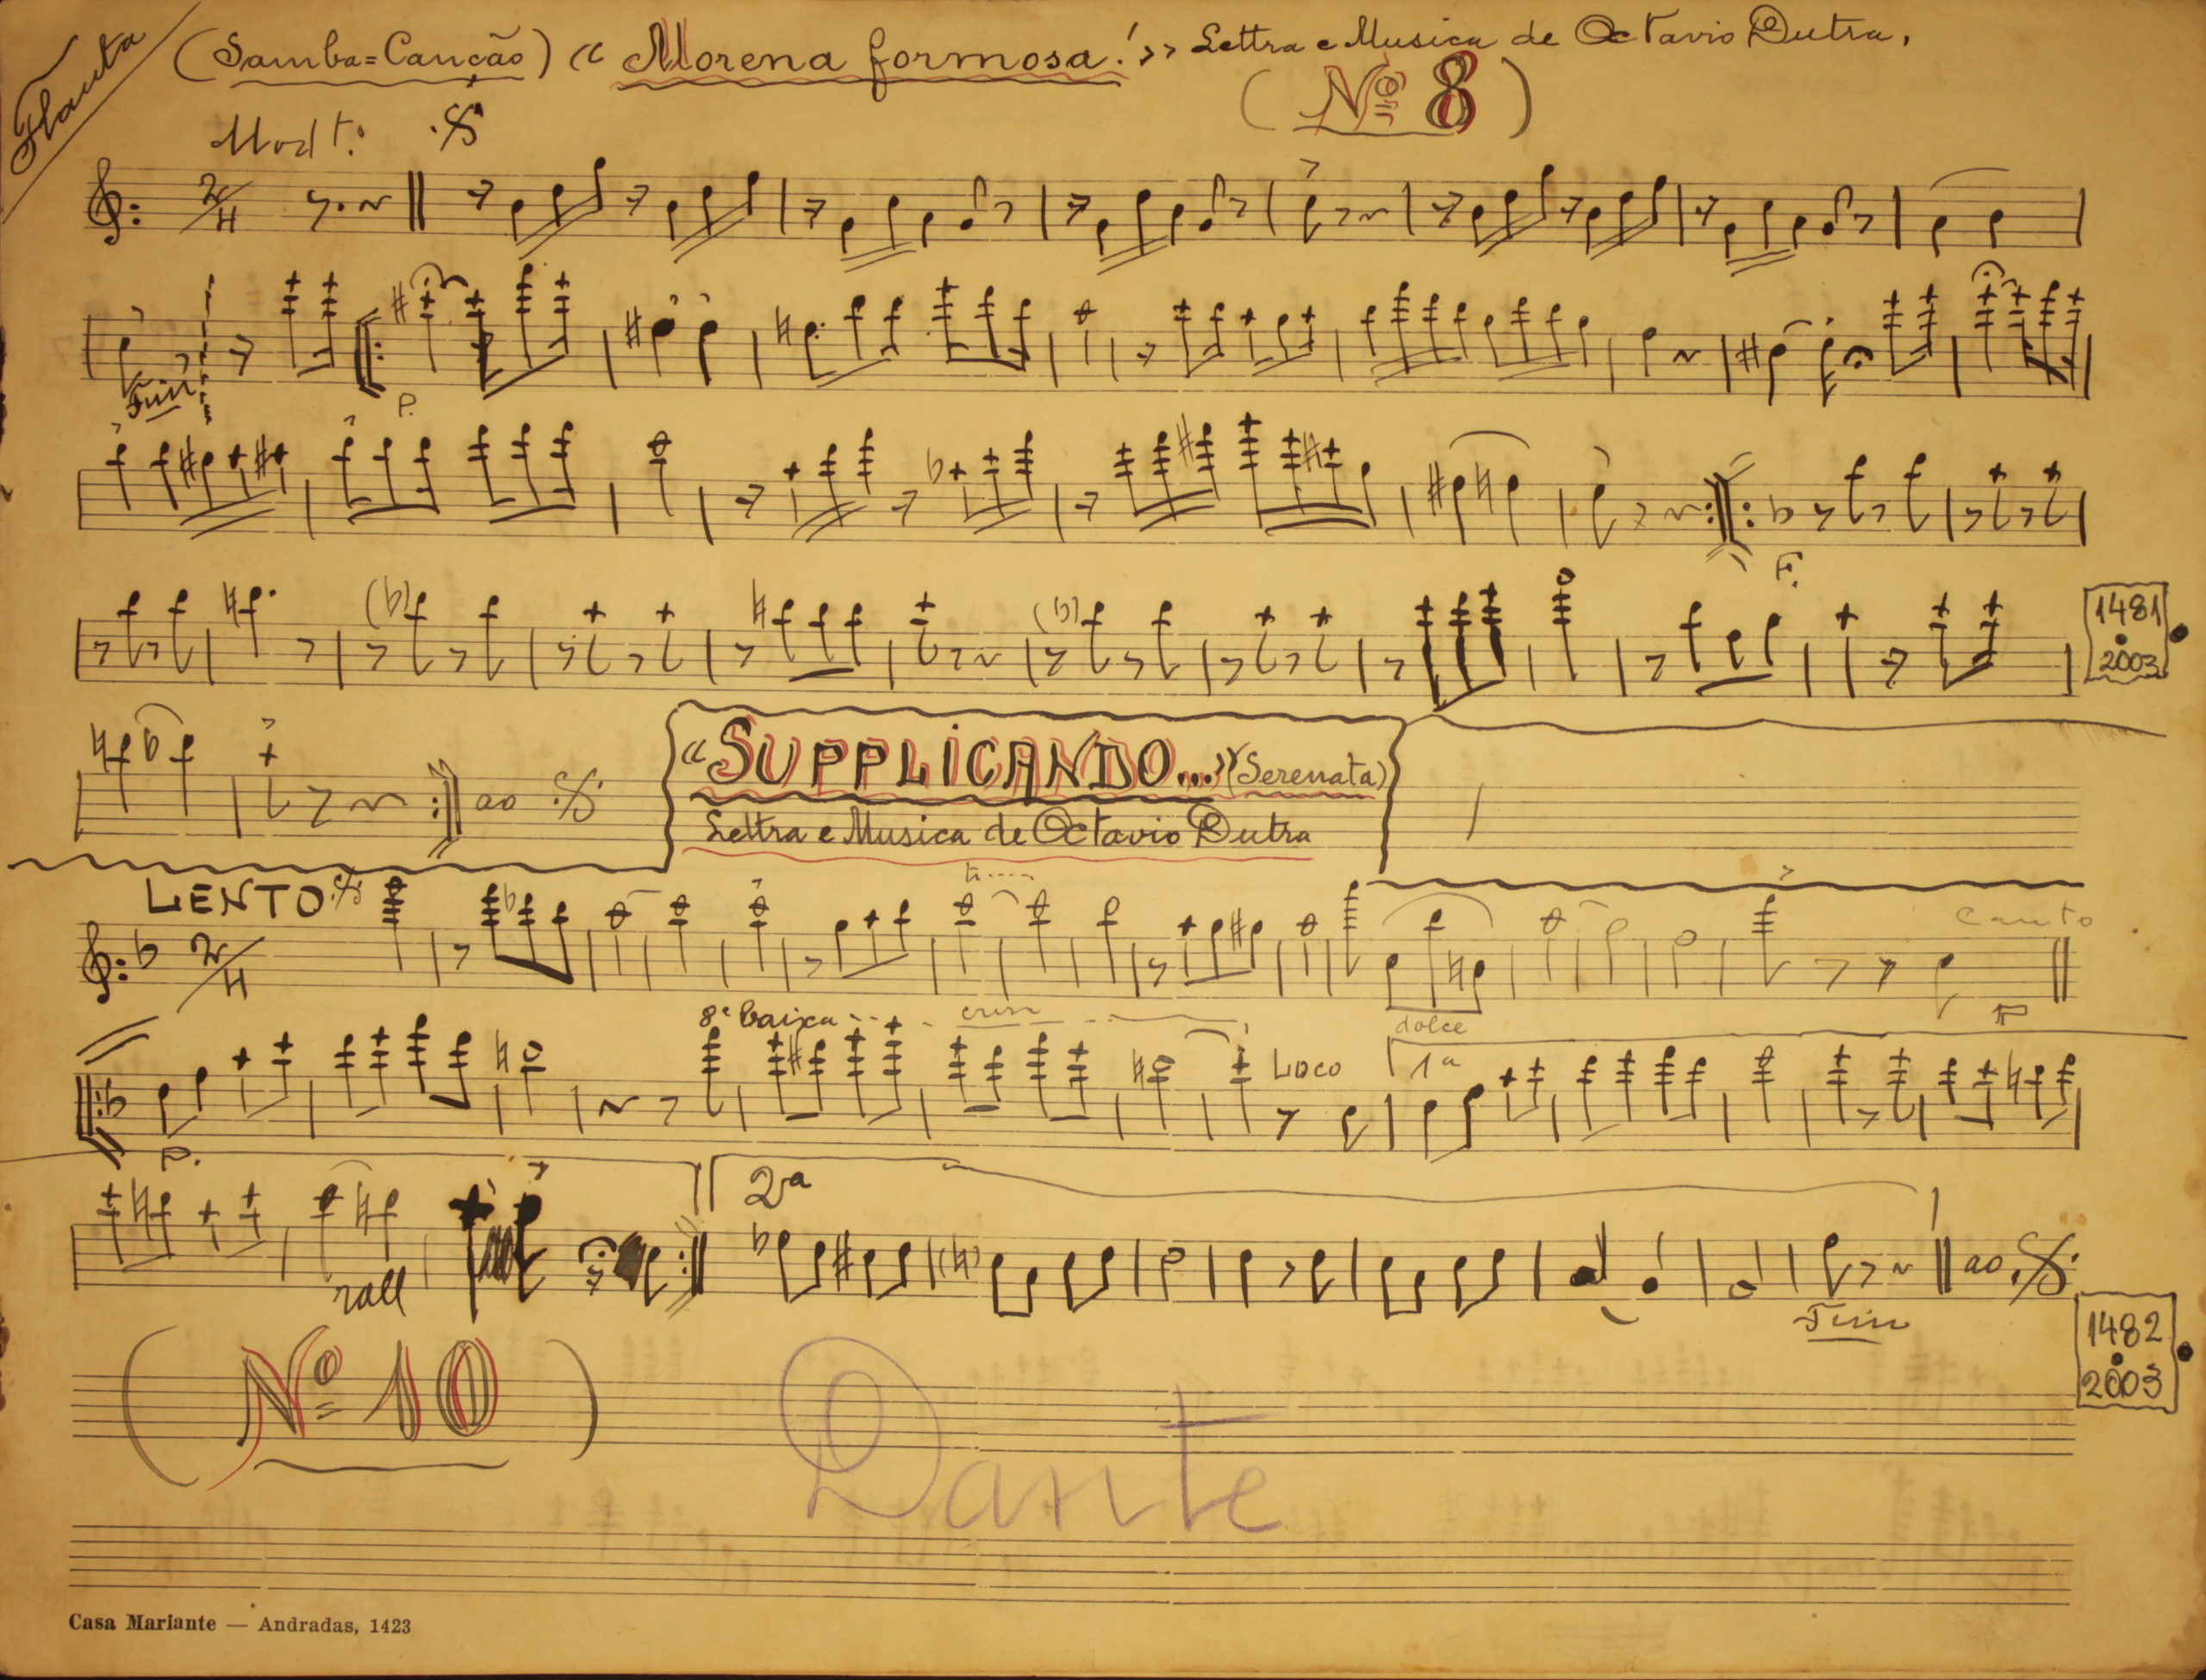 Flauta
(Samba=Canção) « Morena formosa!» Lettra e Musica de Octavio Dutra.
(Nº 8)
Modt:
2/4
Fin
P.
F.
1481
2003
ao
«SUPPLICANDO...» (Serenata)
Lettra e Musica de Octavio Dutra
LENTO
tr.....
Canto
2/4
P
8ª baixa
cresc
dolce
Loco
1ª
P.
2ª
rall
ao
Fin
1482
2003
(Nº 10)
Dante
Casa Mariante — Andradas, 1423